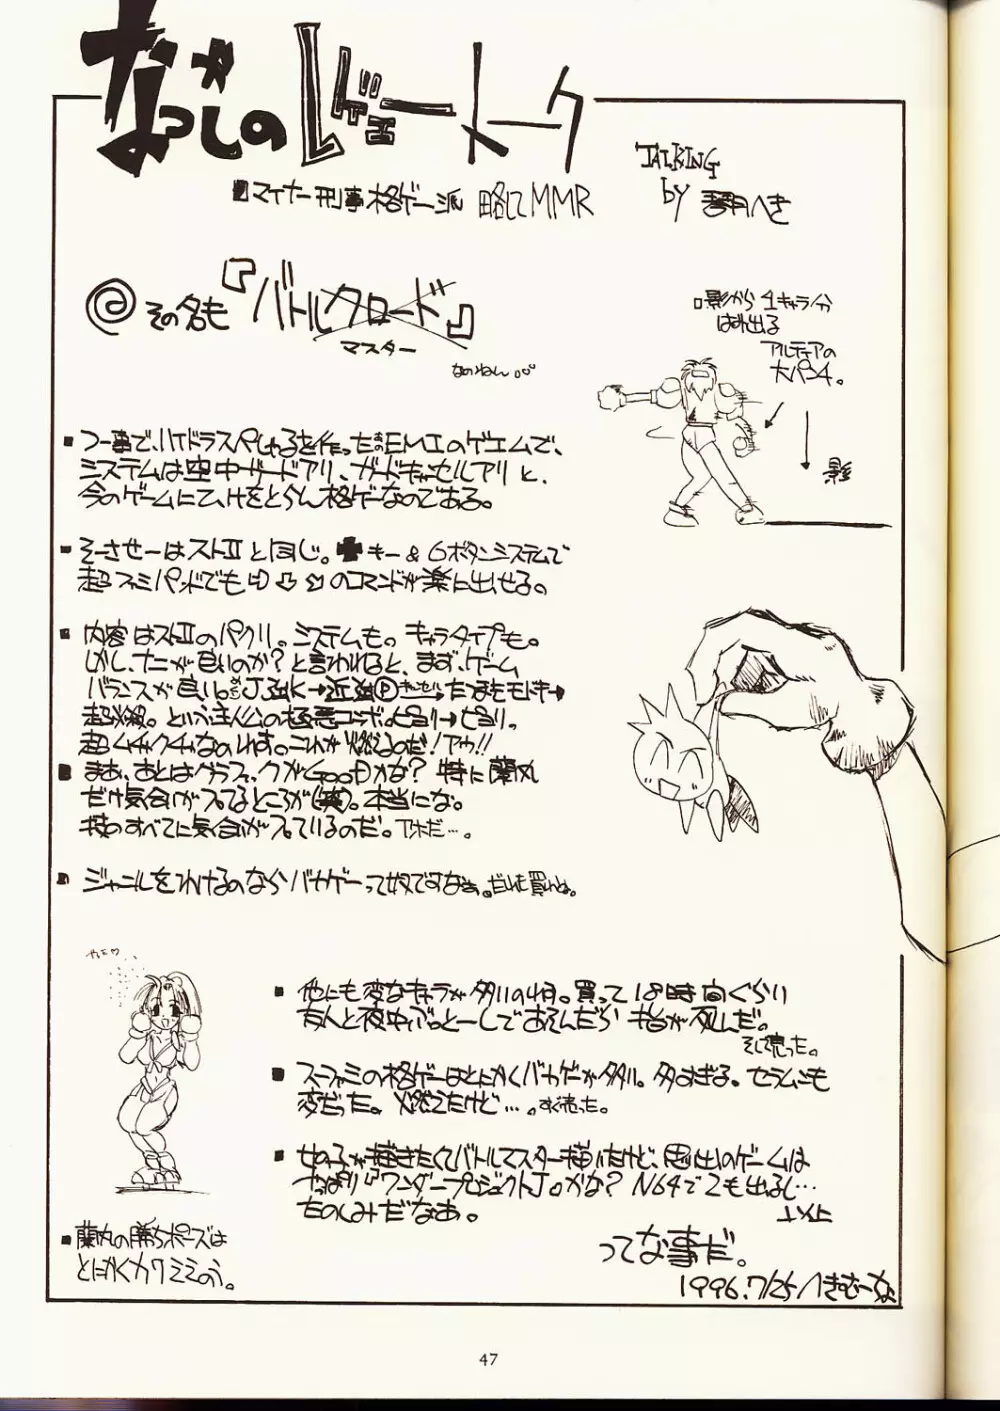 なつかしのレヴェートーク
■マイナー刑事格ゲー派 略してMMR
TALKING
by 翠月へき
@その名も『バトルクロード』
マスター
なのねん。。。
□影から1キャラ分
はみ出る
アルティアの
大パンチ。
影
■つー事で、ハイドラスペしゃるを作ったEMIのゲエムで、
システムは空中ガードアリ、ガードキャンセルアリと、
今のゲームにひけをとらん格ゲーなのである。
■そーさせーはストⅡと同じ。✚キー＆6ボタンシステムで
超ファミパッドでも⇨⇩⬂のコマンドが楽に出せる。
■内容はストⅡのパクリ。システムも。キャラタイプも。
しかし、ナニが良いのか？と言われると、まず、ゲーム
バランスが良い。めちゃJ強K→近強Ⓟキャンセル→たつまきモドキ→
超必殺。という主人公の極悪コンボ。ピヨリ→ピヨリ。
超ムチャクチャなのれす。これが燃えるのだ！アゥ!!
■まあ、あとはグラフィックがGOODかな？特に蘭丸
だけ気合いが入ってるところが（笑）。本当にな。
技のすべてに気合が入っているのだ。アホだ…。
■ジャンルをつけるのならバカゲーって奴ですなぁ。だいたい買いね。
■他にも変なキャラが多いのね。買って18時間ぐらい
友人と夜中ぶっとーしであそんだら本台が死んだ。
そして売った。
■スーファミの格ゲーはとにかくバカゲーが多い。多すぎる。セラムンも
変だった。燃えたけど…。すぐ売った。
■女の子が描きたくてバトルマスター描いたけど、思い出のゲームは
やっぱり『ワンダープロジェクトJ』かな？N64で2も出るし…
たのしみだなあ。
以上
■蘭丸の勝ちポーズは
とにかくカワミミのう。
ってな事だ。
1996.7/25 へきむーな
47